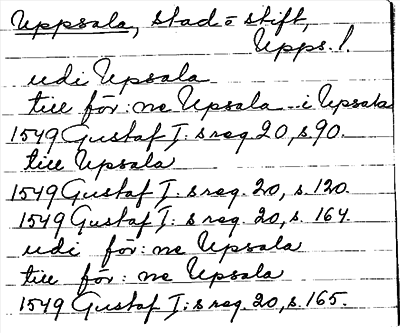 Uppsala, stad o stift,
Upps. l.
udi Upsala
till för: ne Upsala - i Upsala
1549 Gustaf I: s reg. 20, s 90.
till Upsala
1549 Gustaf I: s reg. 20, s. 120.
1549 Gustaf I: s reg. 20, s. 164.
udi för: ne Upsala
till för: ne Upsala
1549 Gustaf I: s reg. 20, s. 165.